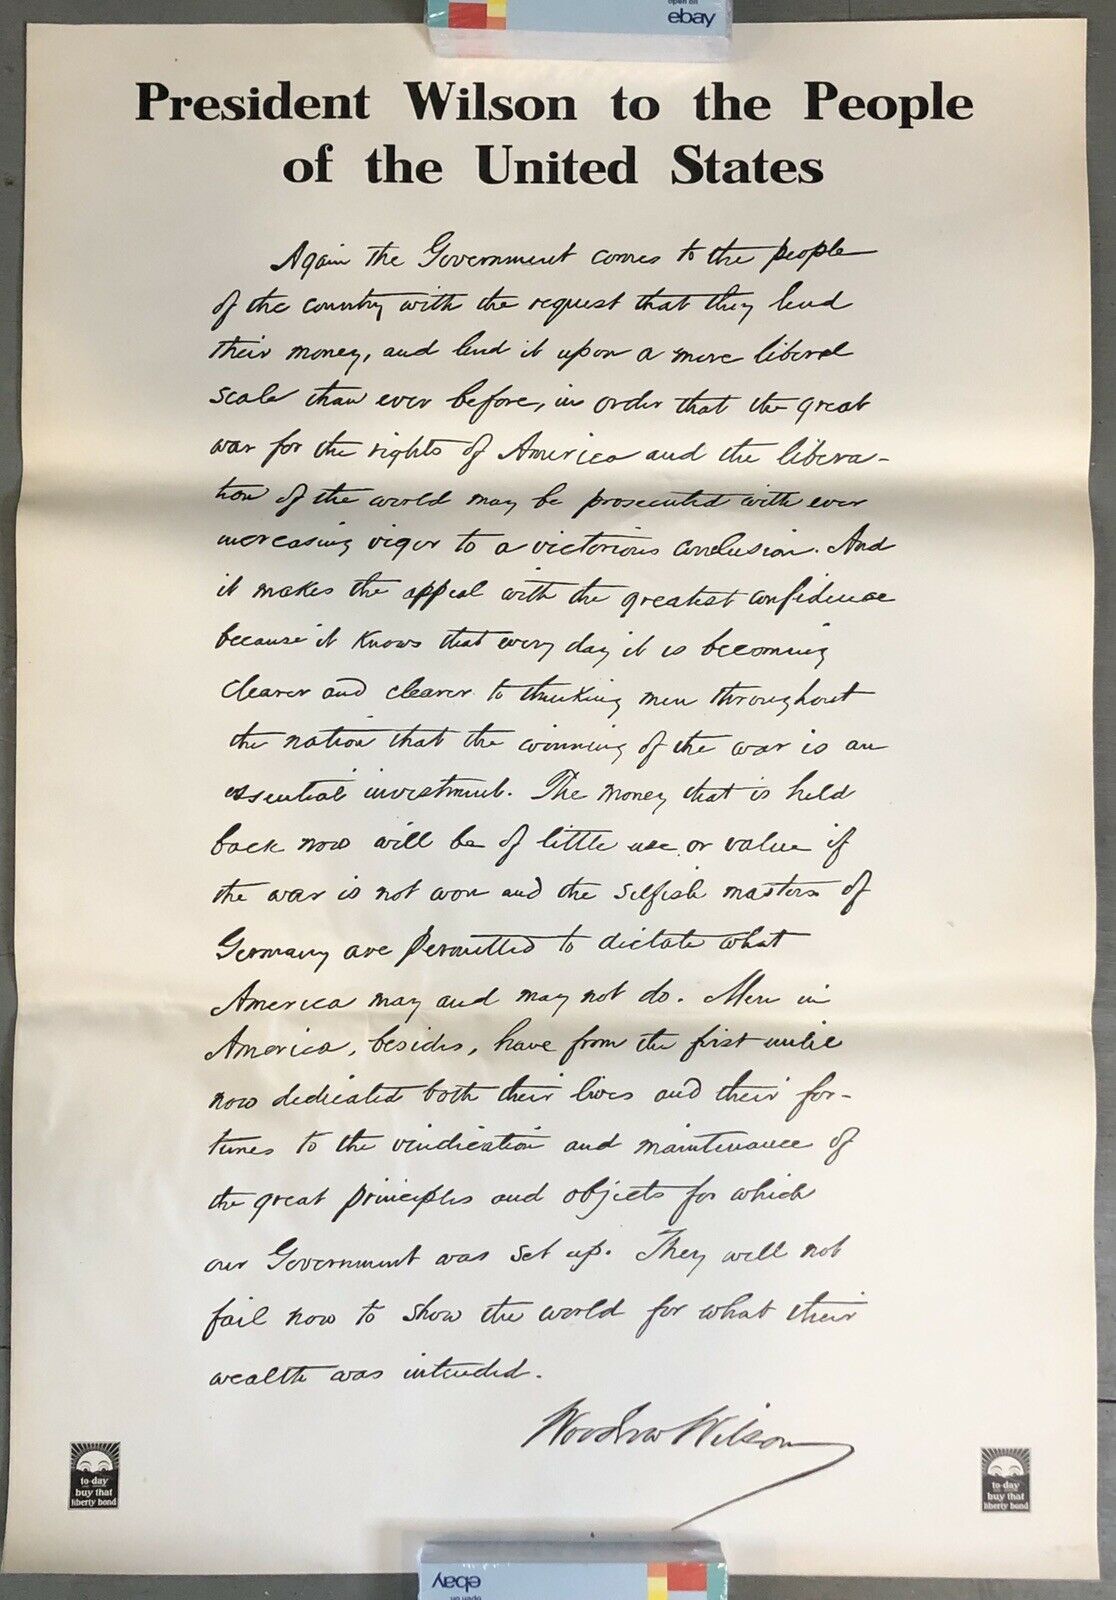 open on
ebay
President Wilson to the People
of the United States
Again the Government comes to the people
of the country with the request that they lend
their money, and lend it upon a more liberal
scale than ever before, in order that the great
war for the rights of America and the libera-
tion of the world may be prosecuted with ever
increasing vigor to a victorious conclusion. And
it makes the appeal with the greatest confidence
because it knows that every day it is becoming
clearer and clearer to thinking men throughout
the nation that the winning of the war is an
essential investment. The money that is held
back now will be of little use or value if
the war is not won and the selfish masters of
Germany are permitted to dictate what
America may and may not do. Men in
America, besides, have from the first until
now dedicated both their lives and their for-
tunes to the vindication and maintenance of
the great principles and objects for which
our Government was set up. They will not
fail now to show the world for what their
wealth was intended.
Woodrow Wilson
to-day
buy that
liberty bond
to-day
buy that
liberty bond
ebay
open on